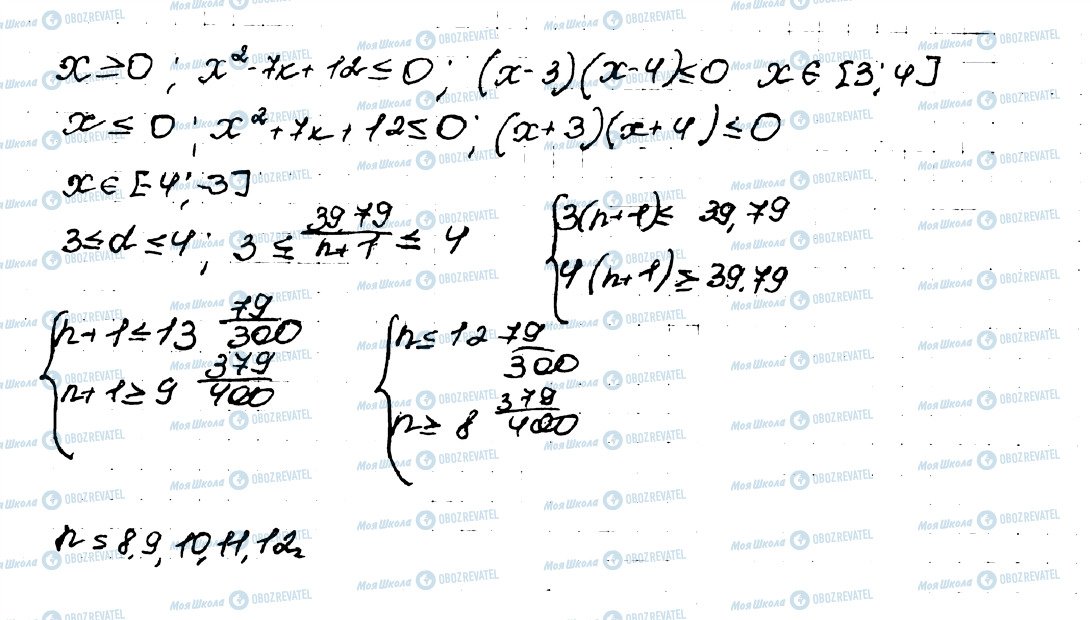 x ≥ 0 ; x² - 7x + 12 ≤ 0 ; (x - 3)(x - 4) ≤ 0 x ∈ [3; 4]
x ≤ 0 ; x² + 7x + 12 ≤ 0 ; (x + 3)(x + 4) ≤ 0
x ∈ [-4; -3]
3 ≤ d ≤ 4 ; 3 ≤ 39,79/(n+1) ≤ 4
{ 3(n+1) ≤ 39,79
4(n+1) ≥ 39,79
{ n + 1 ≤ 13 79/300
n + 1 ≥ 9 379/400
{ n ≤ 12 79/300
n ≥ 8 379/400
n = 8, 9, 10, 11, 12.
Моя Школа OBOZREVATEL